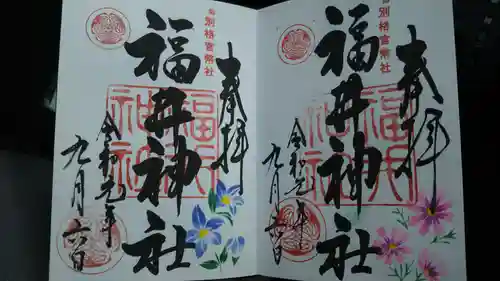 奉拝
別格官幣社
福井神社
福井
神社
令和元年
九月六日
奉拝
別格官幣社
福井神社
福井
神社
令和元年
九月六日